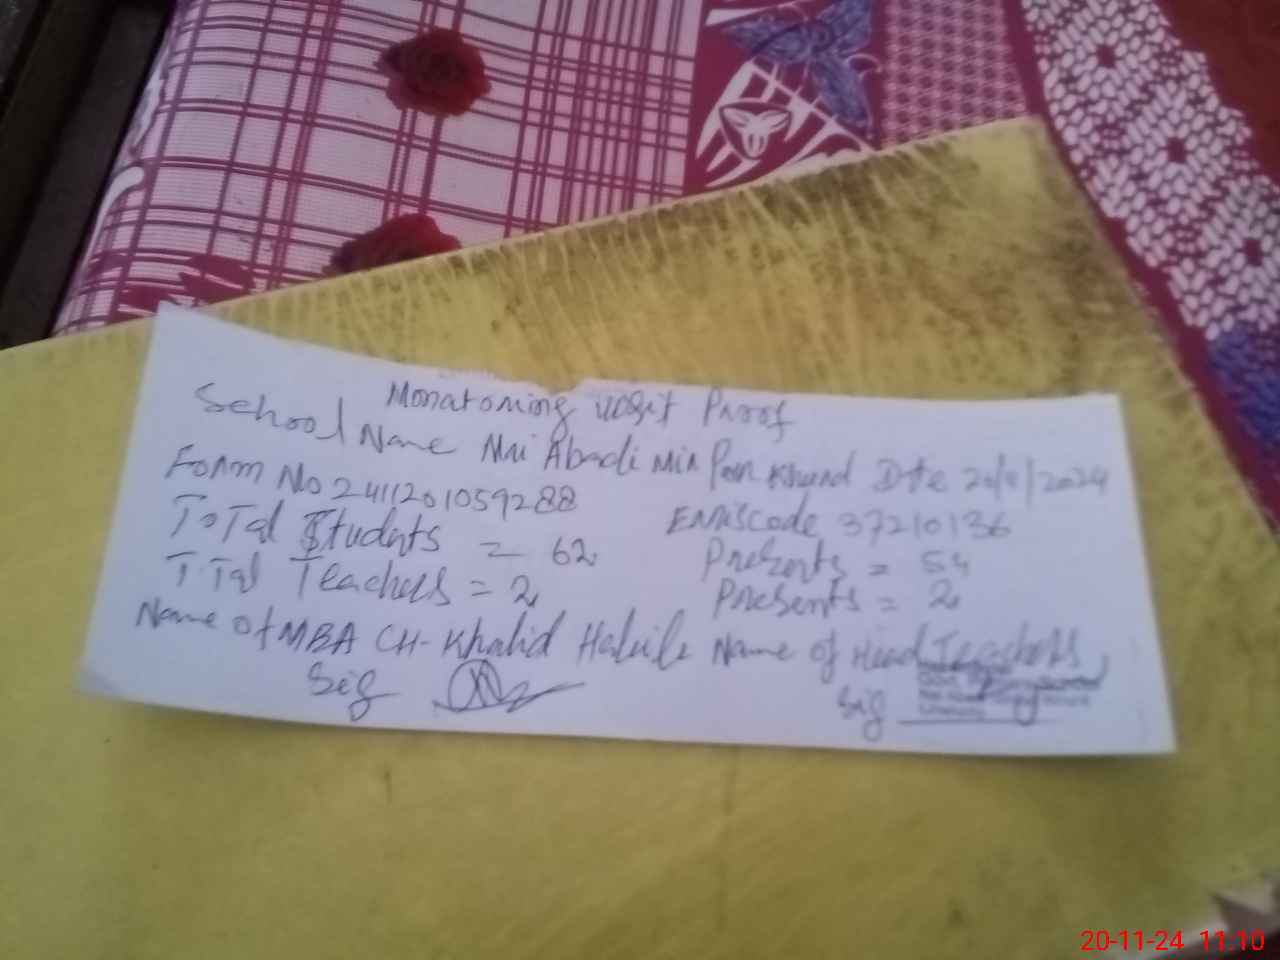 Monatoning visit Proof
School Name Nai Abadi Mir Khund Date 20/11/2024
Form No 241120105928 8 Emiscode 37210136
ToTal Students = 62 Presents = 54
TTal Teachers = 2 Presents = 2
Name of MBA CH-Khalid Habib Name of Head Teachers
Sig Sig
20-11-24 11:10